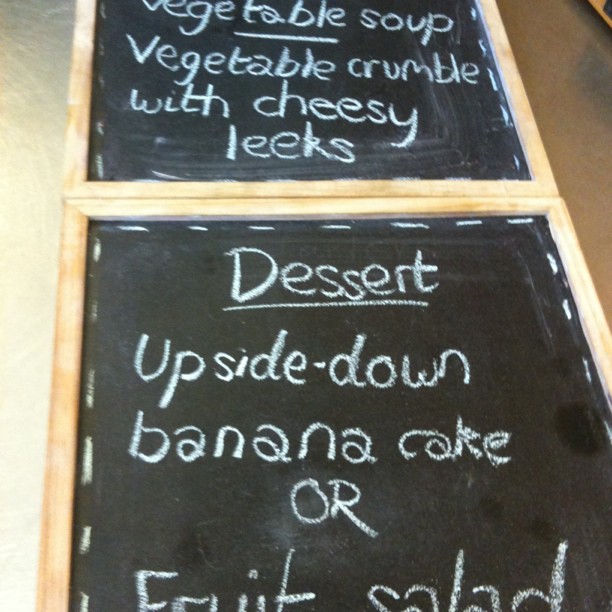 Vegetable soup
Vegetable crumble
with cheesy
leeks
Dessert
Upside-down
banana cake
OR
Fruit salad